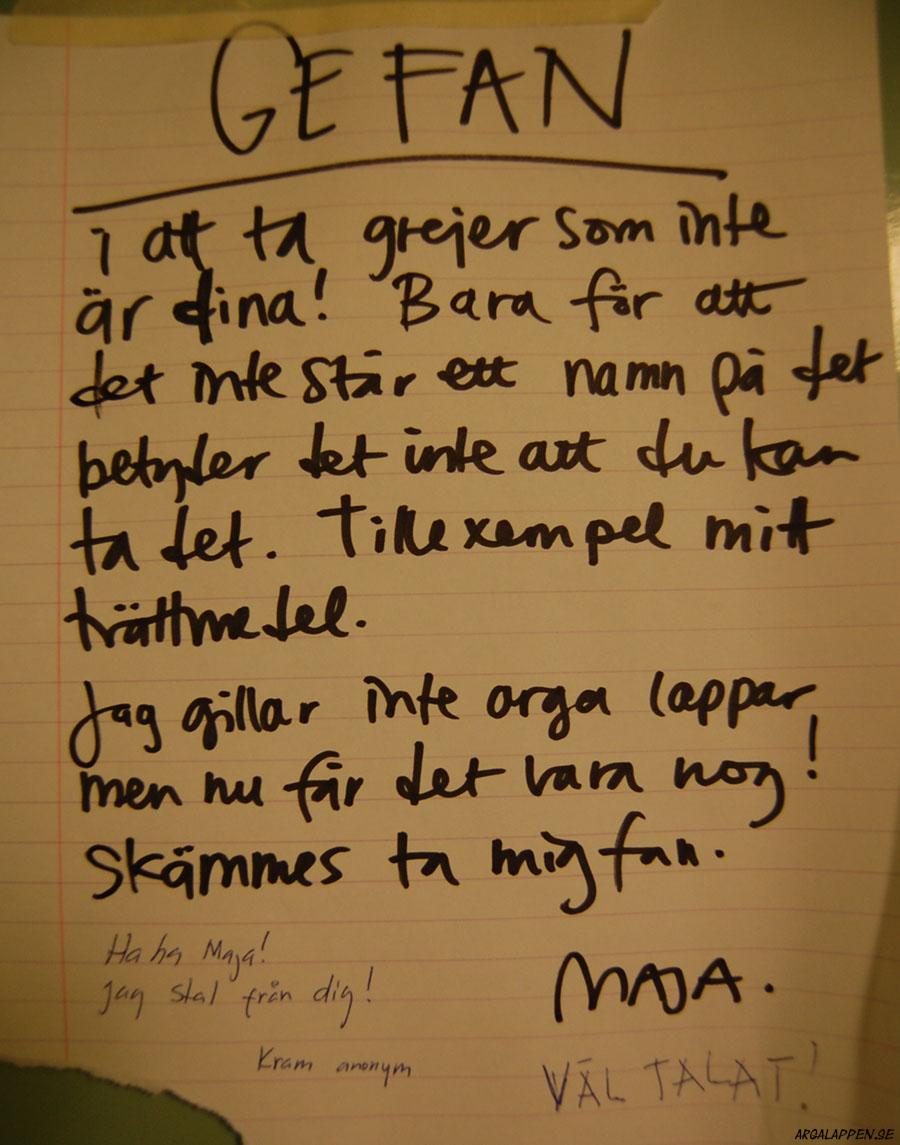 GE FAN
i att ta grejer som inte
är dina! Bara för att
det inte står ett namn på det
betyder det inte att du kan
ta det. Till exempel mitt
trättmedel.
Jag gillar inte arga lappar
men nu får det vara nog!
Skämmes ta mig fan.
MAJA.
Ha ha Maja!
Jag stal från dig!
Kram anonym
VÄL TALAT!
ARGALAPPEN.SE